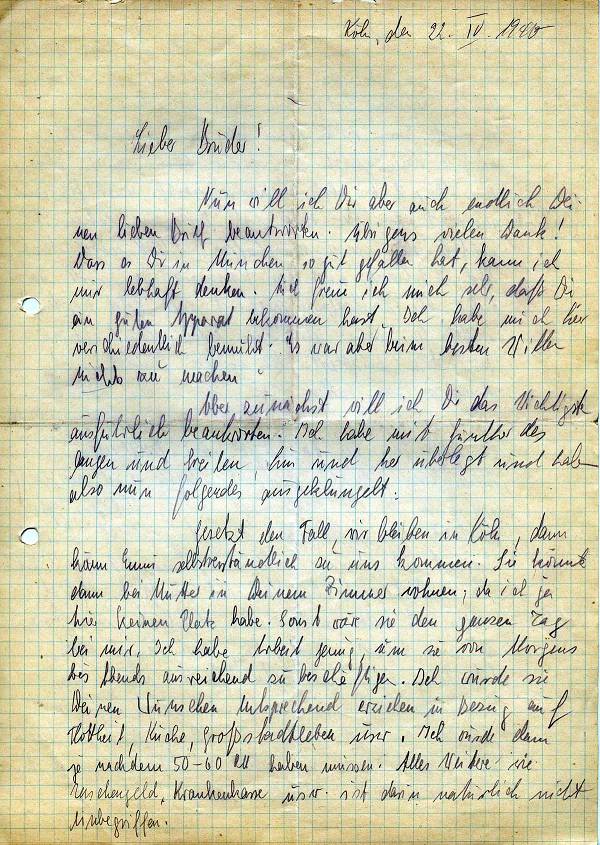 Köln, den 22. IV. 1940
Lieber Bruder!
Nun will ich Dir aber auch endlich Dei-
nen lieben Brief beantworten. Übrigens vielen Dank!
Dass es Dir in München so gut gefallen hat, kann ich
mir lebhaft denken. Auch freue ich mich sehr, daß Du
ein guten Apparat bekommen hast. Ich habe mich hier
verschiedentlich bemüht. Es war aber beim besten Willen
nichts zu machen.
Aber zunächst will ich Dir das Wichtigste
ausführlich beantworten. Ich habe mit Günther des
langen und breiten hin und her überlegt und habe
also nun folgendes ausgeklüngelt:
Gesetzt den Fall, wir bleiben in Köln, dann
kann Emmi selbstverständlich zu uns kommen. Sie könnte
dann bei Mutter in Deinem Zimmer wohnen, da ich ja
hier keinen Platz habe. Sonst wär sie den ganzen Tag
bei mir. Ich habe Arbeit genug, um sie von Morgens
bis Abends ausreichend zu beschäftigen. Ich würde sie
Deinen Wünschen entsprechend erziehen in Bezug auf
Flottheit, Küche, Großstadtleben usw. Ich würde dann
je nachdem 50-60 M haben müssen. Alles Weitere wie
Taschengeld, Krankenkasse usw. ist darin natürlich nicht
inbegriffen.